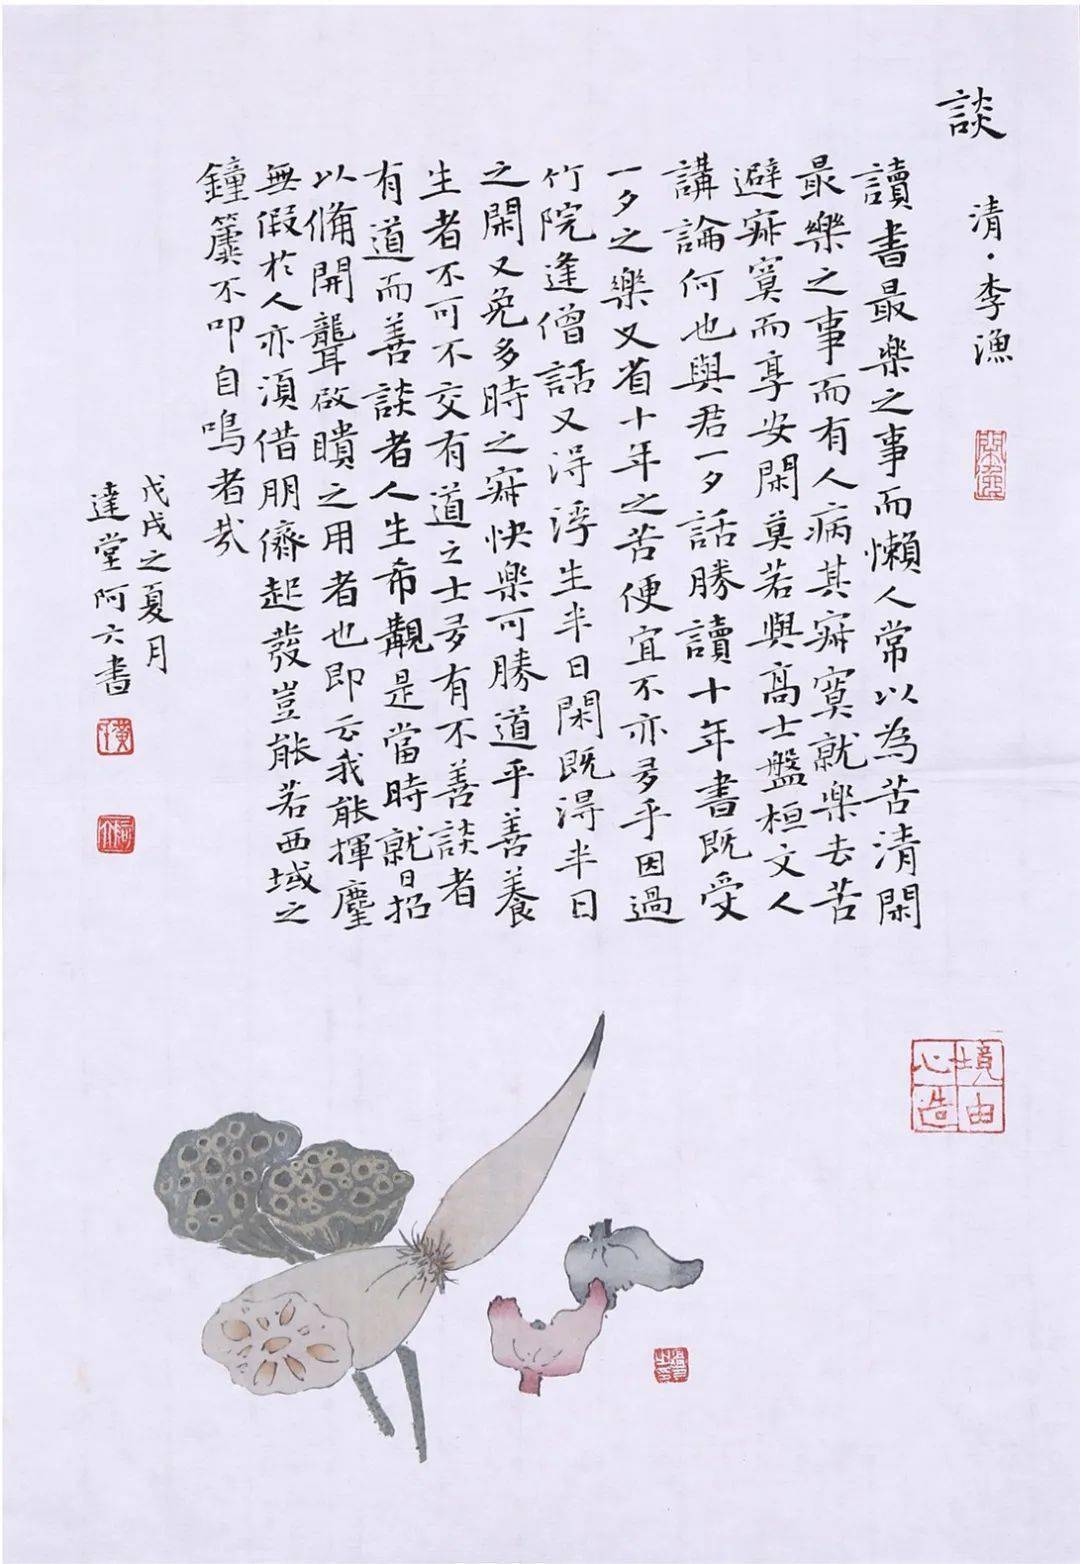 談
清·李漁
讀書最樂之事而懶人常以為苦清閑
最樂之事而有人病其寂寞就樂去苦
避寂寞而享安閑莫若與高士盤桓文人
講論何也與君一夕話勝讀十年書既受
一夕之樂又省十年之苦便宜不亦多乎因過
竹院逢僧話又得浮生半日閑既得半日
之閑又免多時之寂快樂可勝道乎善養
生者不可不交有道之士多有不善談者
有道而善談者人生希覯是當時就日招
以備開聾啟瞶之用者也即云我能揮麈
無假於人亦須借朋儕起發豈能若西域之
鐘簴不叩自鳴者哉
戊戌之夏月
達堂阿六書
境由心造